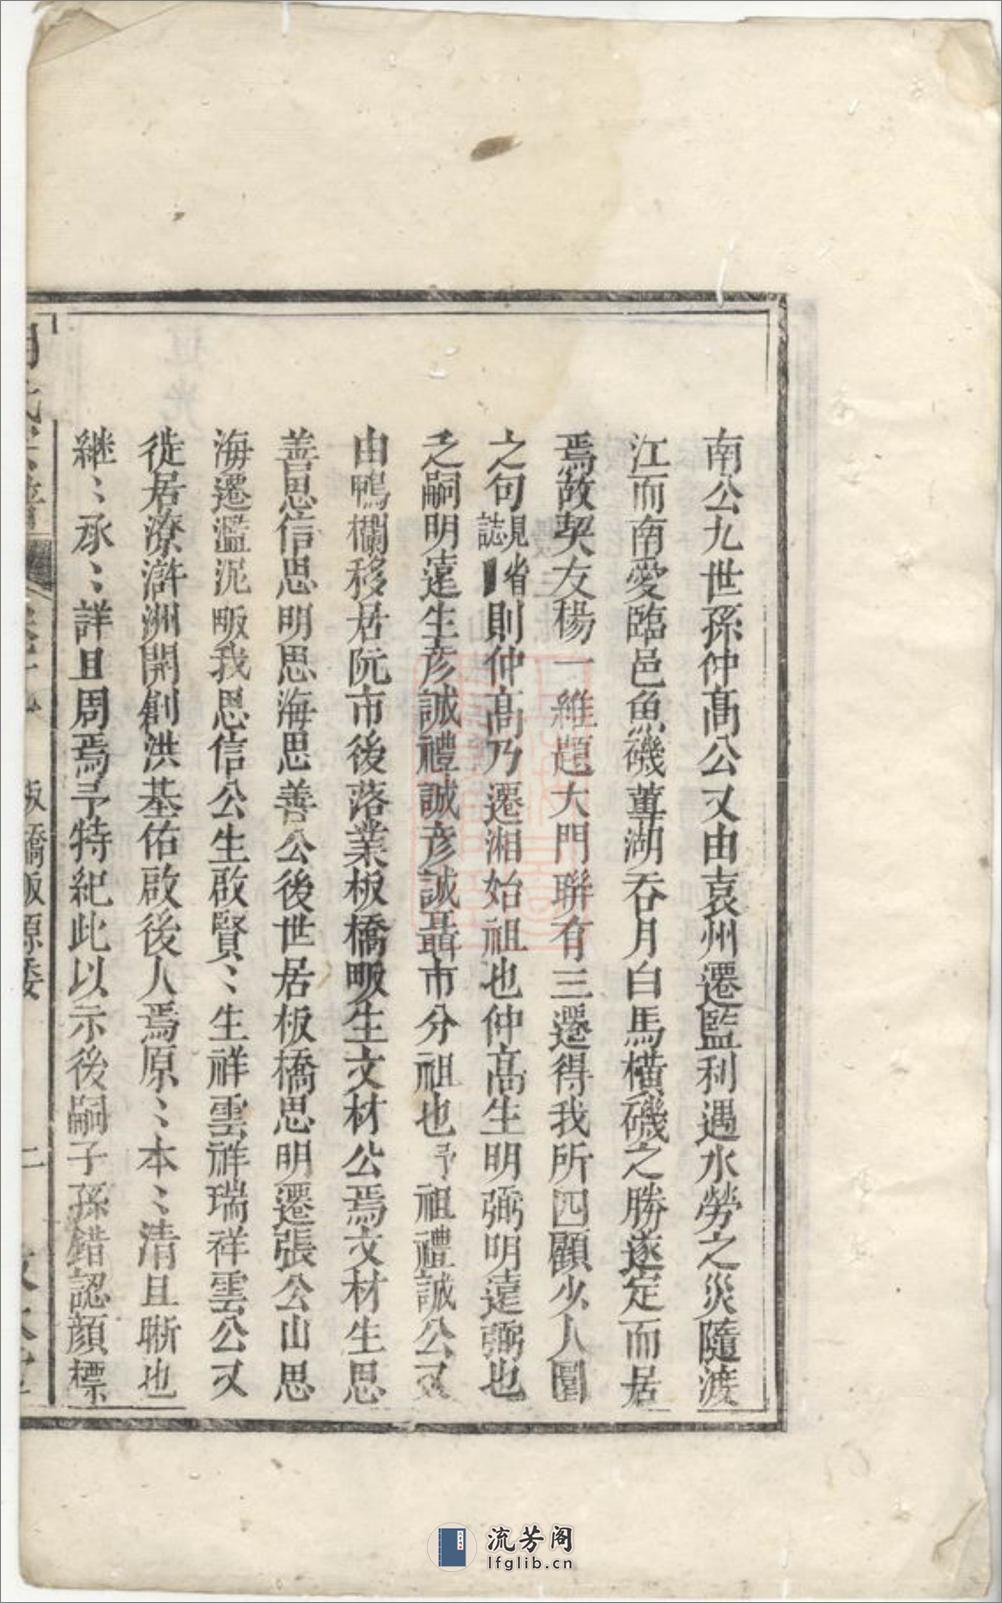 南公九世孫仲髙公又由袁州遷監利遇水勞之災隨渡
江而南愛臨邑魚磯蓴湖吞月白馬橫磯之勝遂定而居
焉故契友楊一維題大門聯有三遷得我所四顧少人圍
之句見省誌則仲髙乃遷湘始祖也仲髙生明弼明遠弼也
之嗣明遠生彥誠禮誠彥誠聶市分祖也予祖禮誠公又
由鴨欄移居阮市後落業板橋畈生文材公焉文材生思
善思信思明思海思善公後世居板橋思明遷張公山思
海遷濫泥畈我思信公生啟賢〻生祥雲祥瑞祥雲公又
徙居潦滸洲開創洪基佑啟後人焉原〻本〻清且晰也
継〻承〻詳且周焉予特紀此以示後嗣子孫錯認顔標
板橋畈源委
二
流芳阁
lfglib.cn